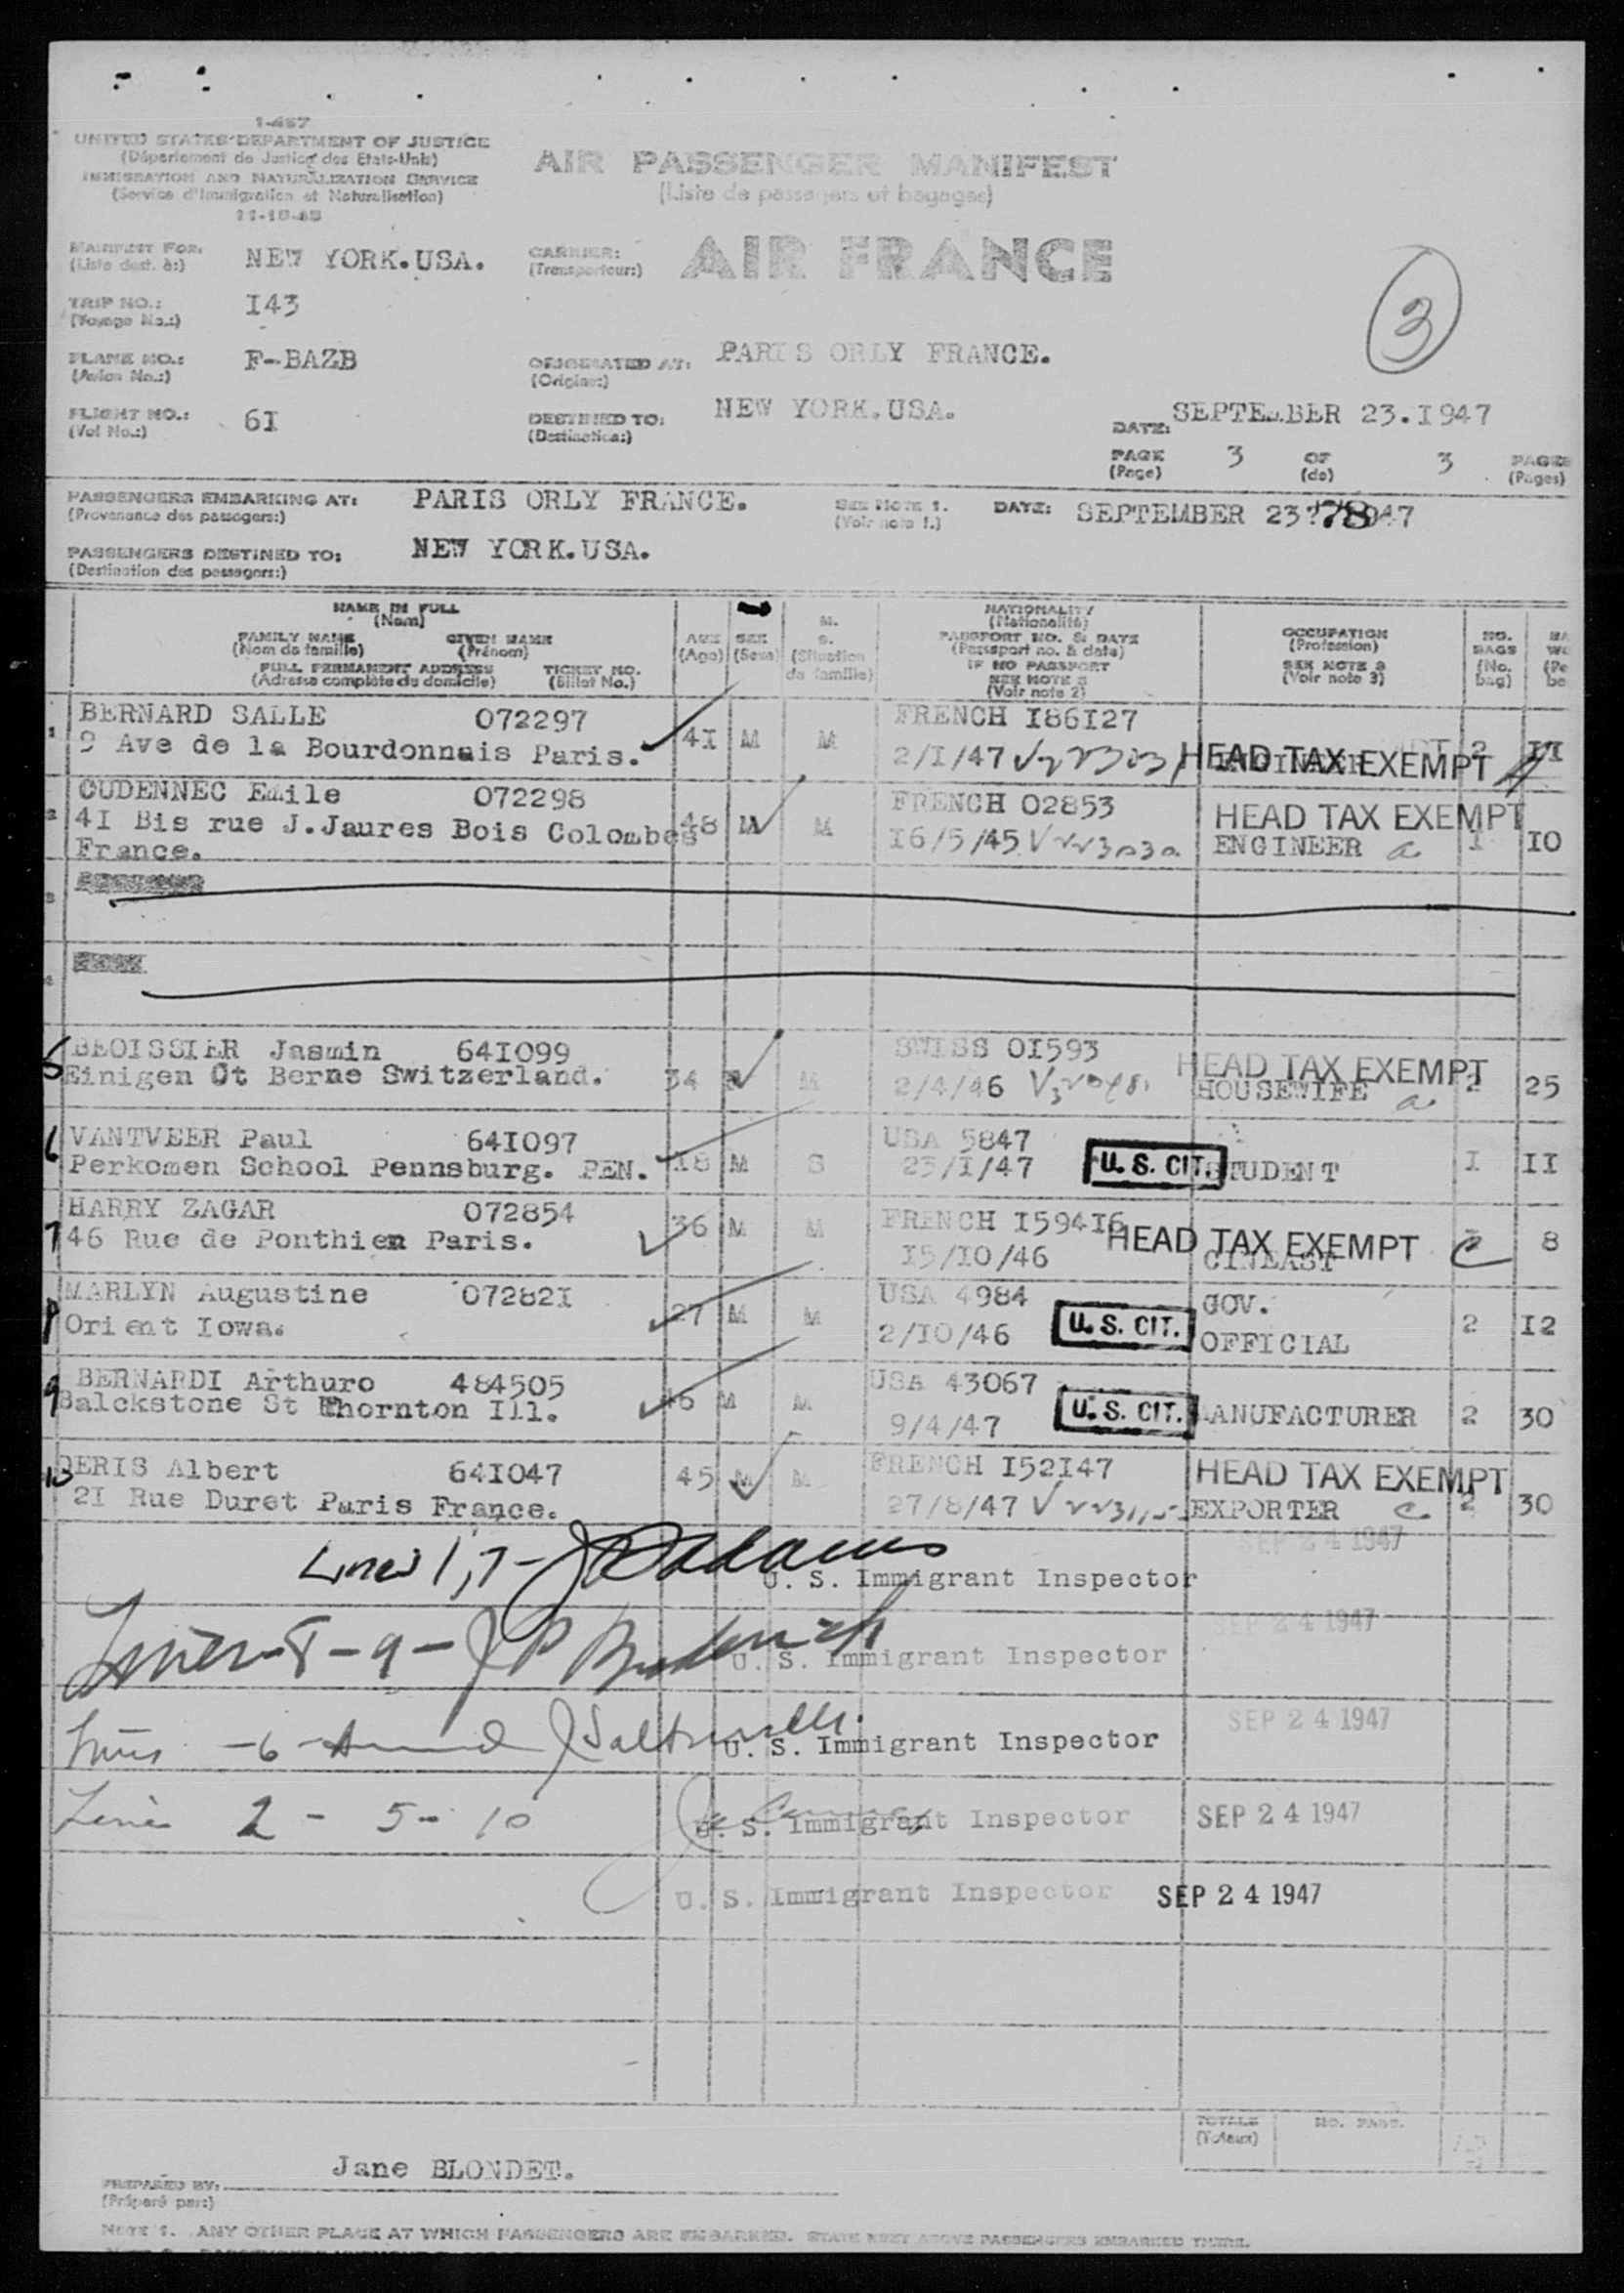 1-457
UNITED STATES DEPARTMENT OF JUSTICE
(Département de Justice des Etats-Unis)
IMMIGRATION AND NATURALIZATION SERVICE
(Service d'Immigration et Naturalisation)
11-15-45
AIR PASSENGER MANIFEST
(Liste de passagers et bagages)
MANIFEST FOR:
(Liste dest. à:)
NEW YORK.USA.
CARRIER:
(Transporteur:)
AIR FRANCE
TRIP NO.:
(Voyage No.:)
I43
3
PLANE NO.:
(Avion No.:)
F-BAZB
ORIGINATED AT:
(Origine:)
PARIS ORLY FRANCE.
FLIGHT NO.:
(Vol No.:)
6I
DESTINED TO:
(Destination:)
NEW YORK.USA.
DATE: SEPTEMBER 23.I947
PAGE 3 OF 3 PAGES
(Page) (de) (Pages)
PASSENGERS EMBARKING AT: PARIS ORLY FRANCE.
(Provenance des passagers:)
SEE NOTE 1.
(Voir note 1.)
DATE: SEPTEMBER 23
PASSENGERS DESTINED TO: NEW YORK.USA.
(Destination des passagers:)
NAME IN FULL
(Nom)
FAMILY NAME GIVEN NAME
(Nom de famille) (Prénom)
FULL PERMANENT ADDRESS TICKET NO.
(Adresse complète du domicile) (Billet No.)
AGE
(Age)
SEX
(Sexe)
M.
S.
(Situation
de famille)
NATIONALITY
(Nationalité)
PASSPORT NO. & DATE
(Passport no. & date)
IF NO PASSPORT
SEE NOTE 2
(Voir note 2)
OCCUPATION
(Profession)
SEE NOTE 3
(Voir note 3)
NO.
BAGS
(No.
bag)
1 BERNARD SALLE 072297 4I M M FRENCH I86I27
9 Ave de la Bourdonnais Paris. 2/I/47 HEAD TAX EXEMPT 2 II
2 OUDENNEC Emile 072298 48 M M FRENCH 02853 HEAD TAX EXEMPT
4I Bis rue J.Jaures Bois Colombes I6/5/45 ENGINEER I IO
France.
3
5 BLOISSIER Jasmin 64I099 SWISS OI593 HEAD TAX EXEMPT
Einigen Ct Berne Switzerland. 34 M 2/4/46 HOUSEWIFE 2 25
6 VANTVEER Paul 64I097 USA 5847
Perkomen School Pennsburg. PEN. I8 M S 23/I/47 U. S. CIT. STUDENT I II
7 HARRY ZAGAR 072854 36 M M FRENCH I594I6
46 Rue de Ponthien Paris. I5/IO/46 HEAD TAX EXEMPT CINEAST 8
8 MARLYN Augustine 07282I 27 M M USA 4984 GOV.
Orient Iowa. 2/IO/46 U. S. CIT. OFFICIAL 2 I2
9 BERNARDI Arthuro 484505 46 M M USA 43067
Balckstone St Thornton Ill. 9/4/47 U. S. CIT. MANUFACTURER 2 30
10 DERIS Albert 64I047 45 M M FRENCH I52I47 HEAD TAX EXEMPT
2I Rue Duret Paris France. 27/8/47 EXPORTER 2 30
SEP 24 1947
Lines 1,7 - Adams
U. S. Immigrant Inspector
SEP 24 1947
Lines - 8 - 9 - J P
U. S. Immigrant Inspector
SEP 24 1947
Lines - 6 -
U. S. Immigrant Inspector
Lines 2 - 5 - 10 U. S. Immigrant Inspector SEP 24 1947
U. S. Immigrant Inspector SEP 24 1947
TOTALS
(Totaux)
NO. PASS.
Jane BLONDET.
PREPARED BY:
(Préparé par:)
NOTE 1. ANY OTHER PLACE AT WHICH PASSENGERS ARE EMBARKED. STATE KEEP ABOVE PASSENGERS EMBARKED THERE.